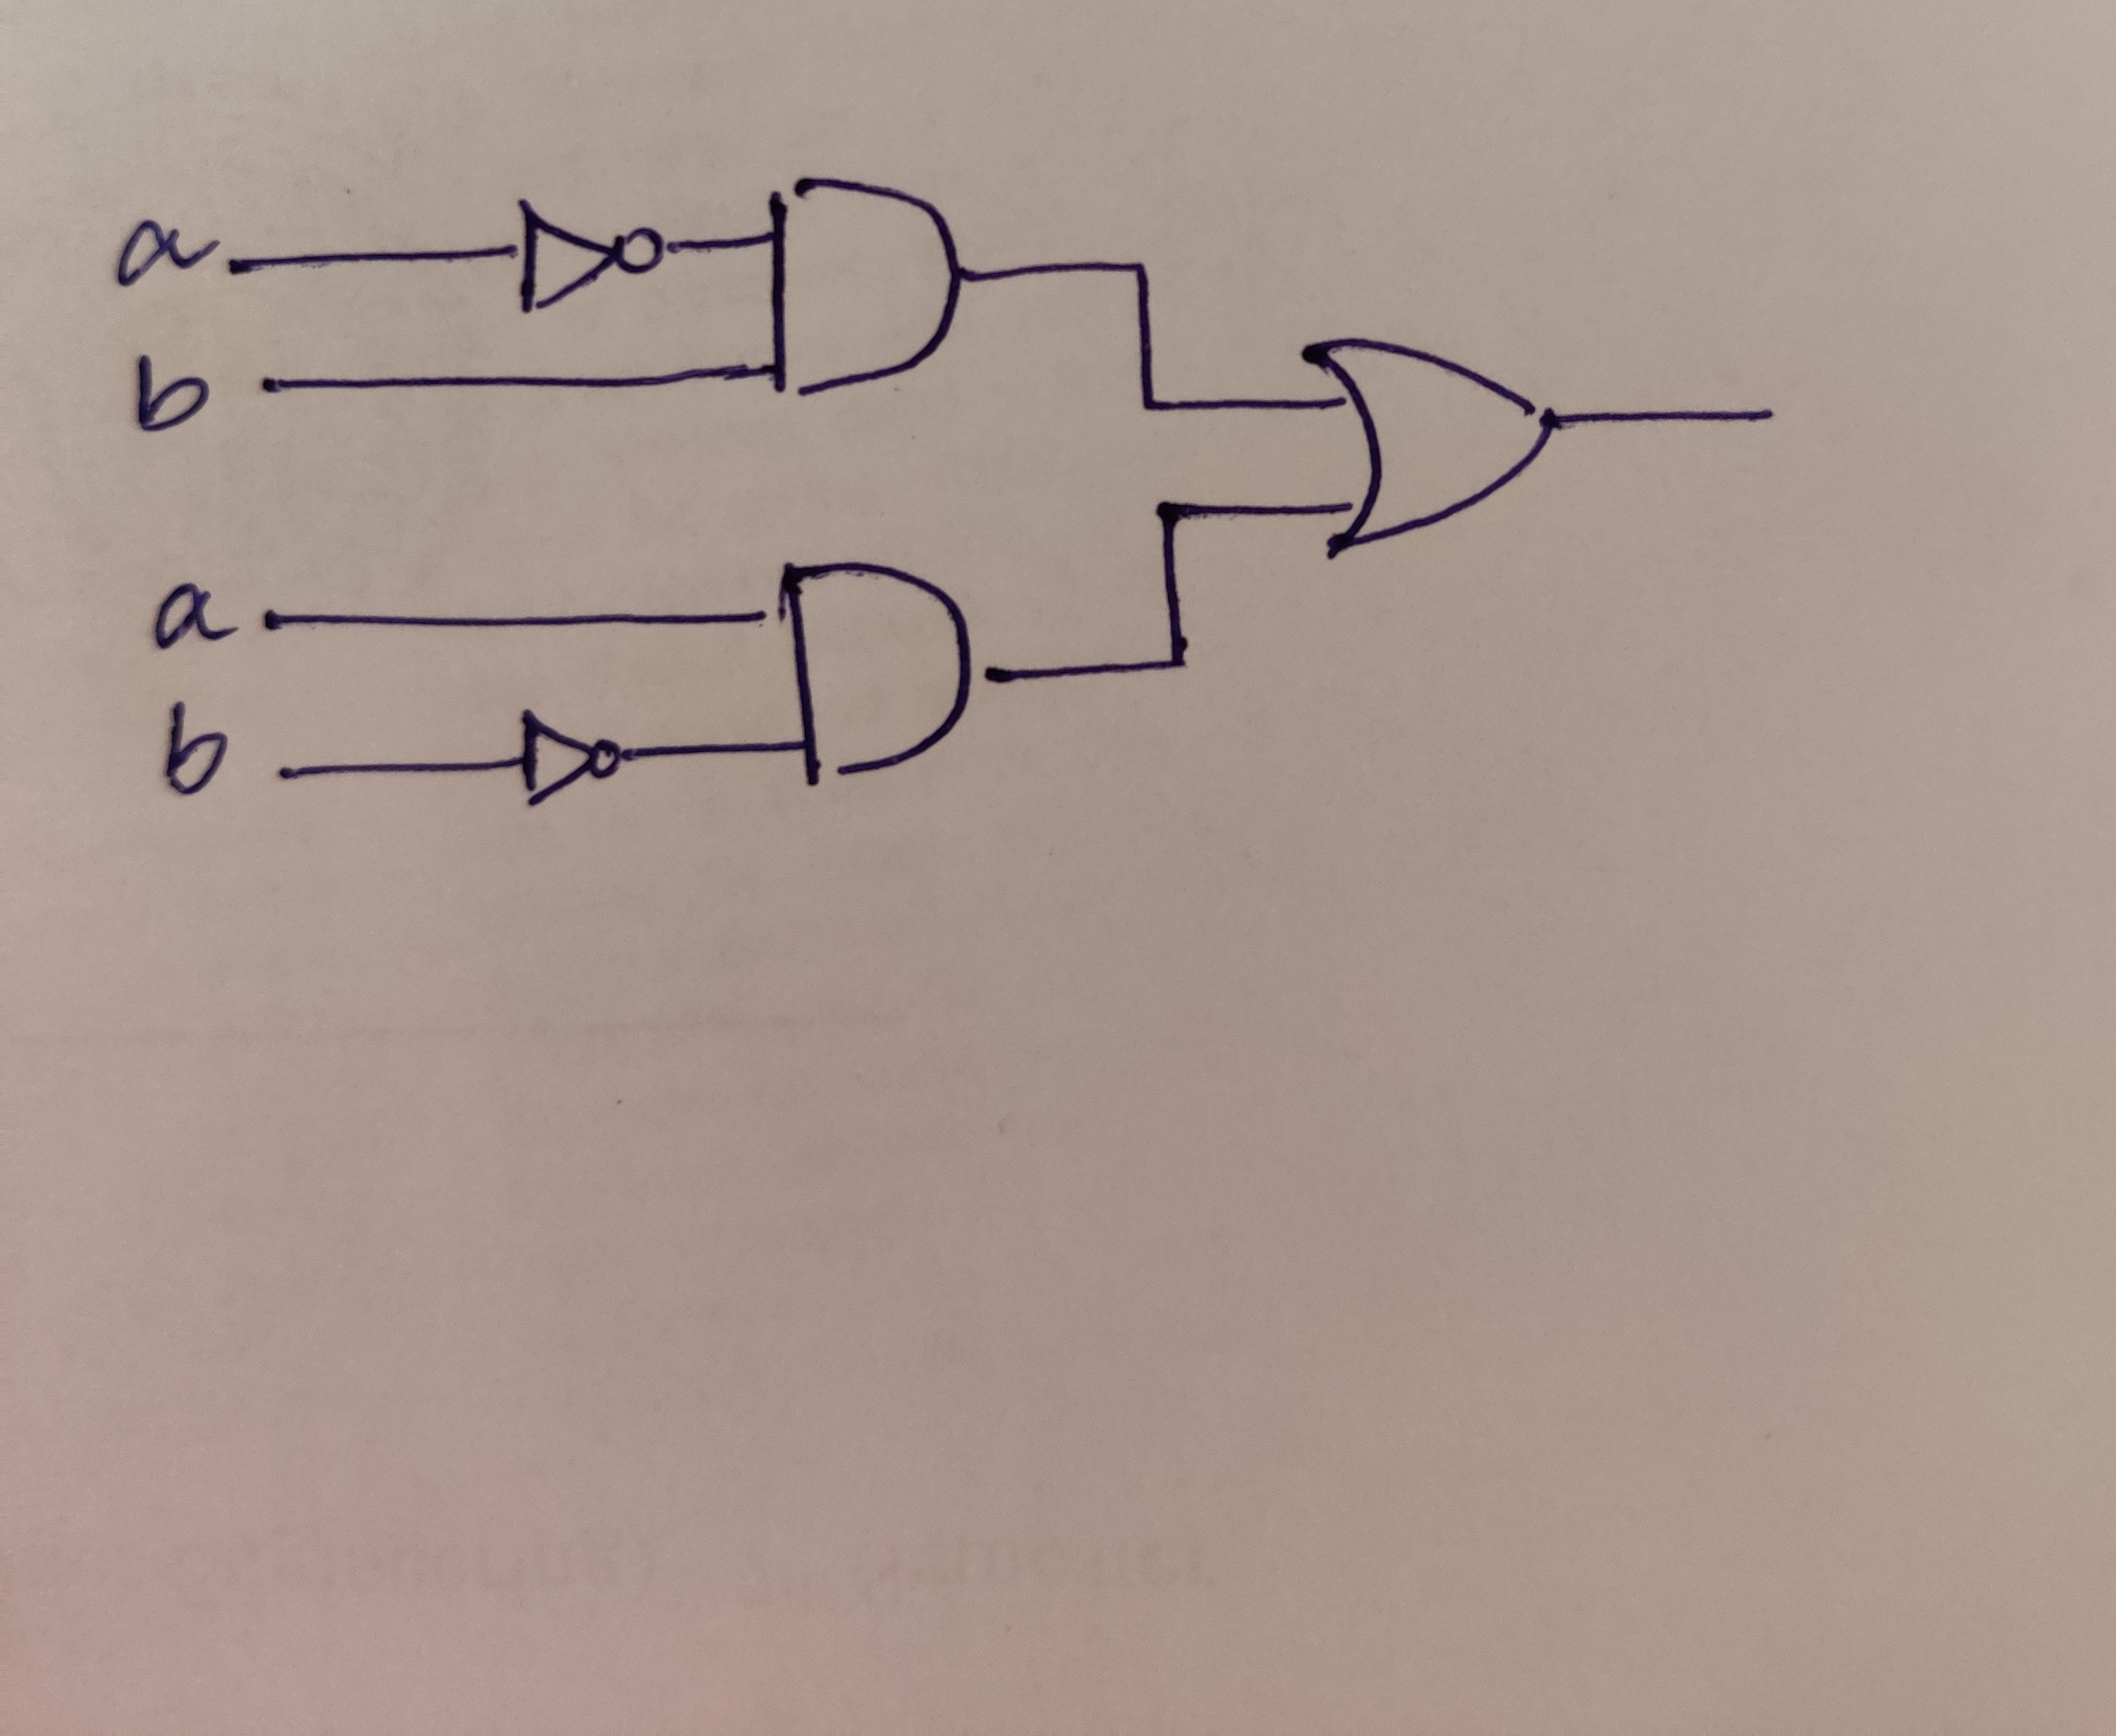 a
b
a
b